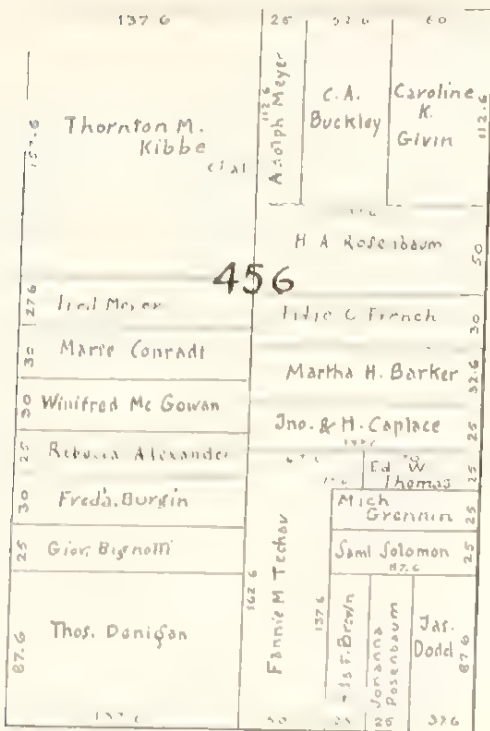 137 6
25
52 6
60
157.6
Thornton M.
Kibbe
et al
112.6
Adolph Meyer
C. A.
Buckley
Caroline
K.
Givin
112.6
H A Rosenbaum
50
456
27 6
Meyer
C French
30
30
Marie Conradt
Martha H. Barker
32.6
30
Winifred Mc Gowan
Jno. & H. Caplace
25
25
Rebecca Alexander
Ed W
Thomas
25
30
Fred'a. Burgin
Mich
Grennin
25
25
Giov. Bignotti
Saml Solomon
87.6
25
87.6
Thos. Donigan
162 6
Fannie M Techav
137.6
F. Brown
Johanna
Rosenbaum
Jas.
Dodd
87 6
137 6
50
25
25
37 6